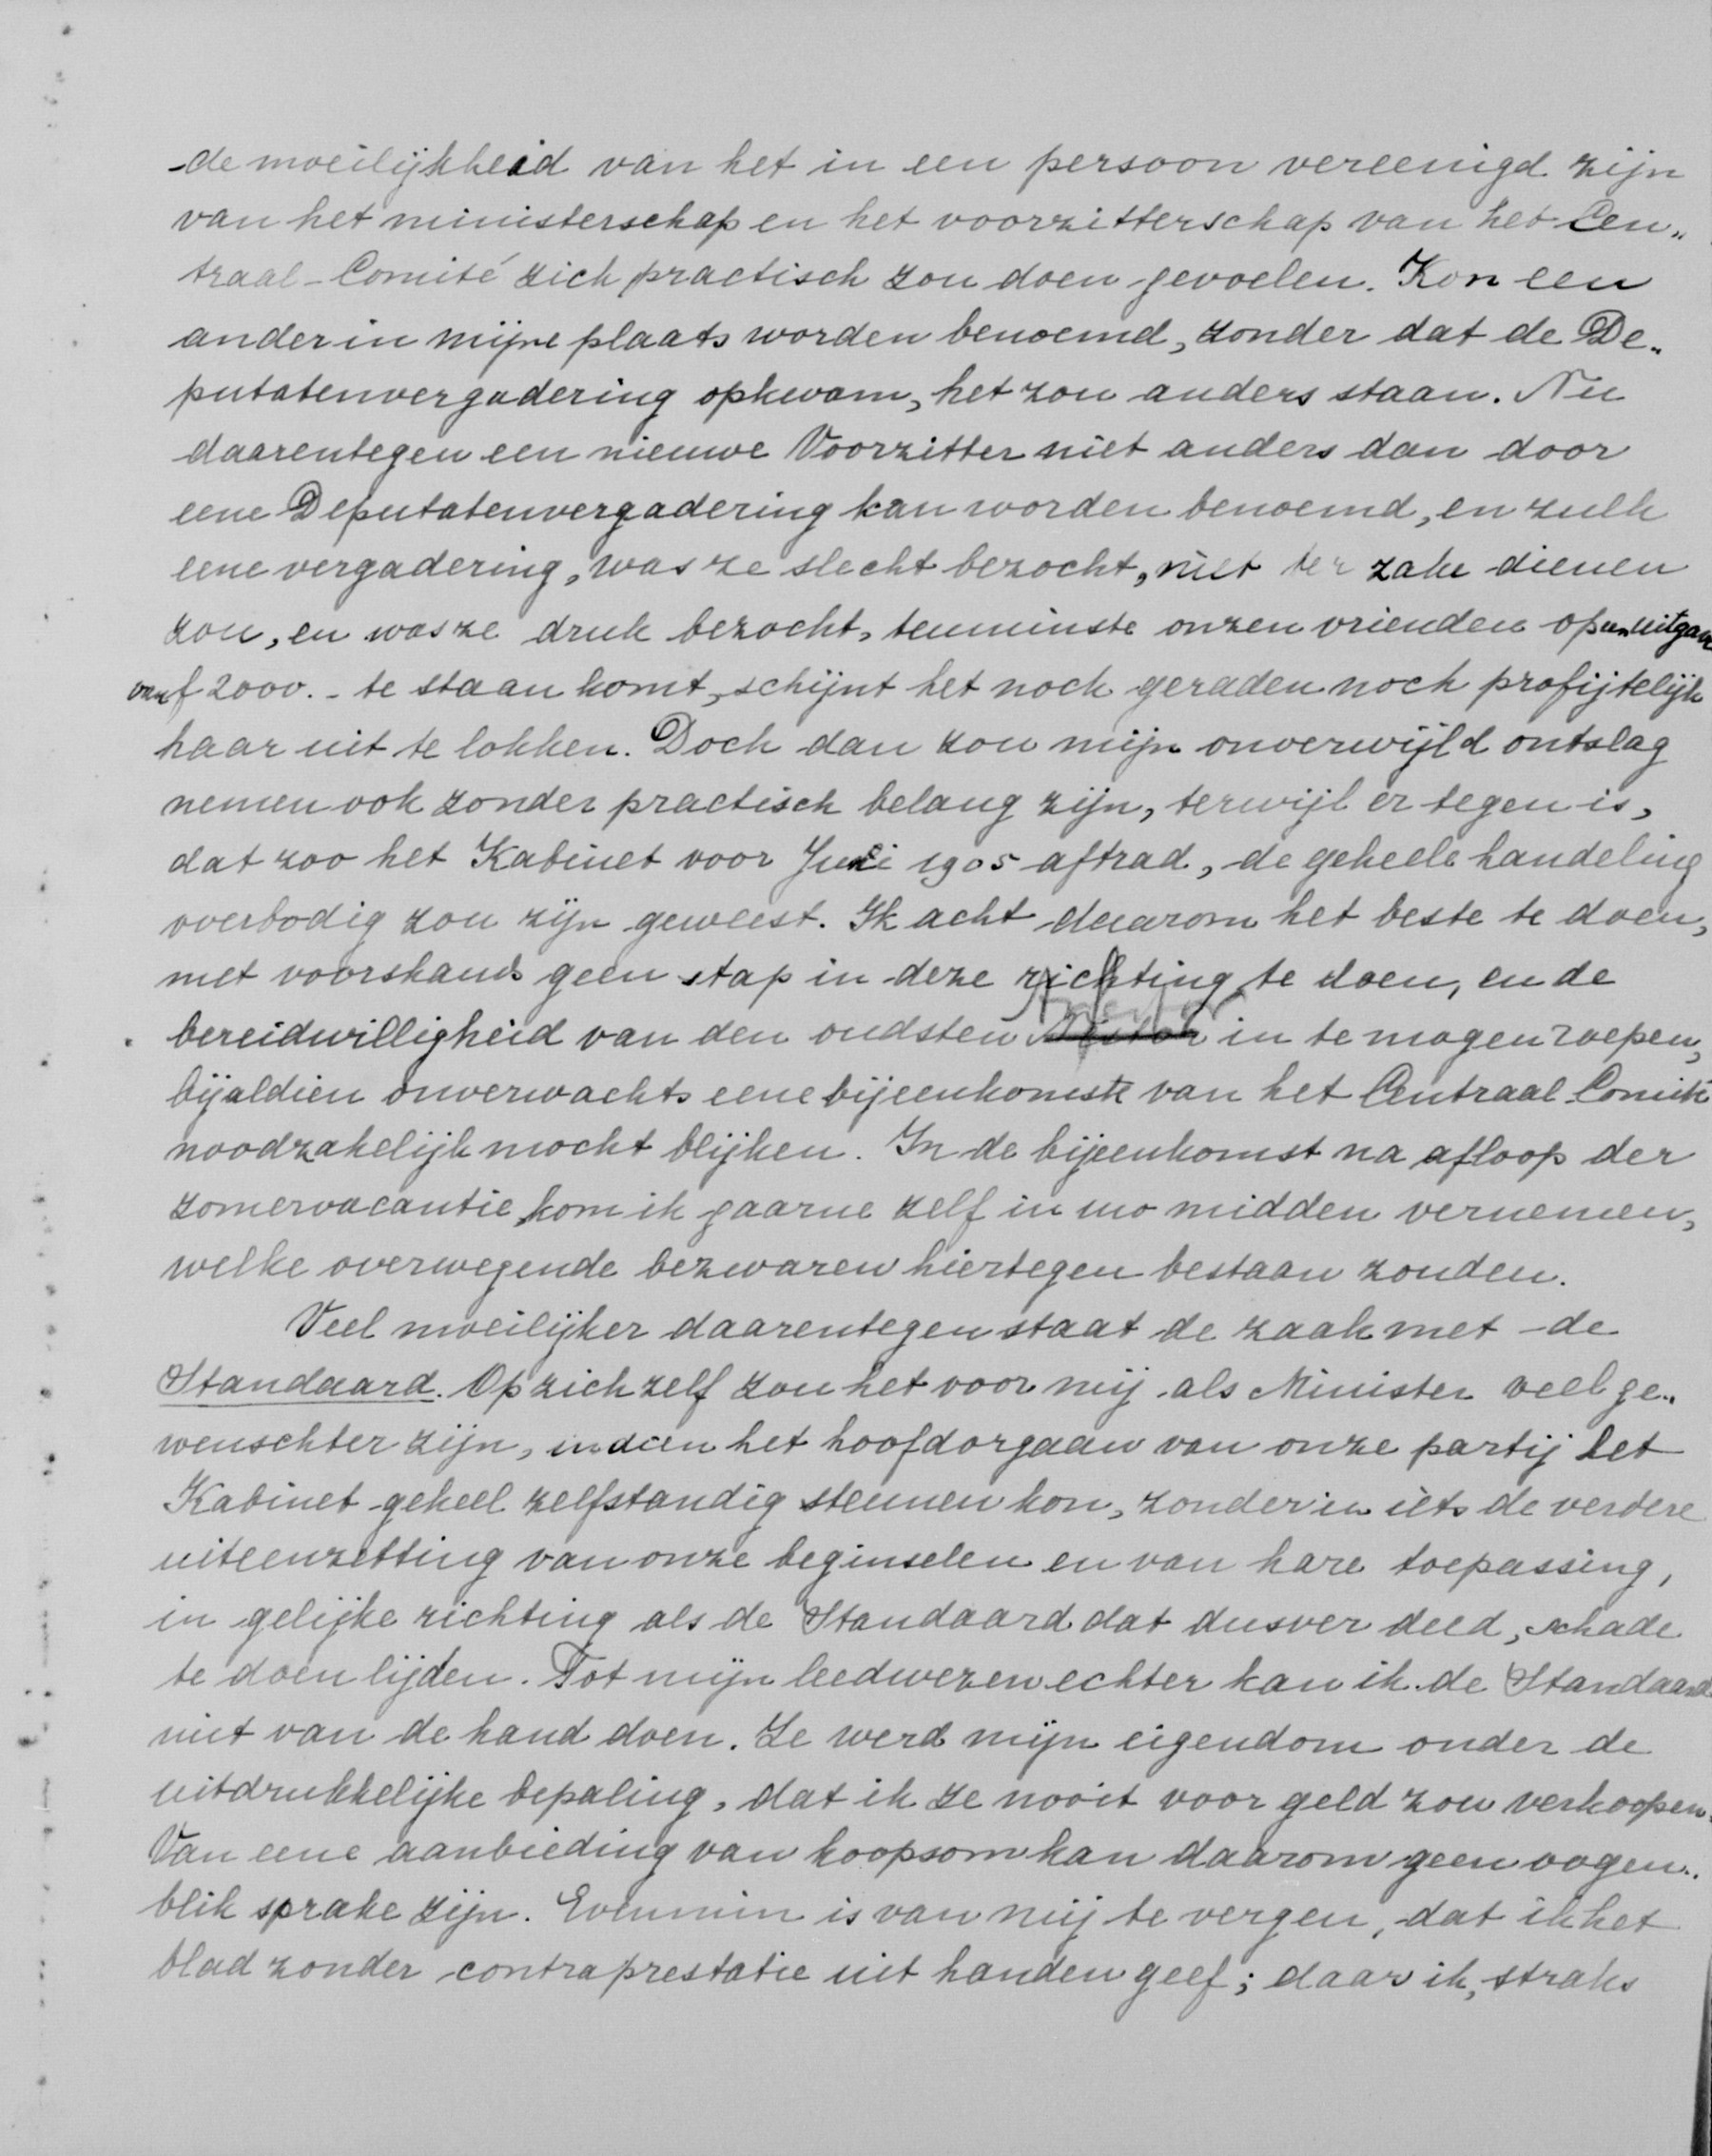 de moeilijkheid van het in een persoon vereenigd zijn
van het ministerschap en het voorzitterschap van het Cen„
traal-Comité zich practisch zou doen gevoelen. Kon een
ander in mijne plaats worden benoemd, zonder dat de De„
putatenvergadering opkwam, het zou anders staan. Nu
daarentegen een nieuwe Voorzitter niet anders dan door
eene Deputatenvergadering kan worden benoemd, en zulk
eene vergadering, was ze slecht bezocht, niet ter zake dienen
zou, en was ze druk bezocht, tenminste onzen vrienden op een uitgave
van f 2000.- te staan komt, schijnt het noch geraden noch profijtelijk
haar uit te lokken. Doch dan zou mijn onverwijld ontslag
nemen ook zonder practisch belang zijn, terwijl er tegen is,
dat zoo het Kabinet voor Juni 1905 aftrad, de geheele handeling
overbodig zou zijn geweest. Ik acht daarom het beste te doen,
met voorshands geen stap in deze richting te doen, en de
bereidwilligheid van den oudsten in te mogen roepen,
bijaldien onverwachts eene bijeenkomst van het Centraal Comité
noodzakelijk mocht blijken. In de bijeenkomst na afloop der
zomervacantie, kom ik gaarne zelf in uw midden vernemen,
welke overwegende bezwaren hiertegen bestaan zouden.
Veel moeilijker daarentegen staat de zaak met de
Standaard. Op zich zelf zou het voor mij als Minister veel ge„
wenschter zijn, indien het hoofdorgaan van onze partij het
Kabinet geheel zelfstandig steunen kon, zonder in iets de verdere
uiteenzetting van onze beginselen en van hare toepassing,
in gelijke richting als de Standaard dat dusver deed, schade
te doen lijden. Tot mijn leedwezen echter kan ik de Standaard
niet van de hand doen. Ze werd mijn eigendom onder de
uitdrukkelijke bepaling, dat ik ze nooit voor geld zou verkoopen.
Van eene aanbieding van koopsom kan daarom geen oogen„
blik sprake zijn. Evenmin is van mij te vergen, dat ik het
blad zonder contraprestatie uit handen geef; daar ik, straks